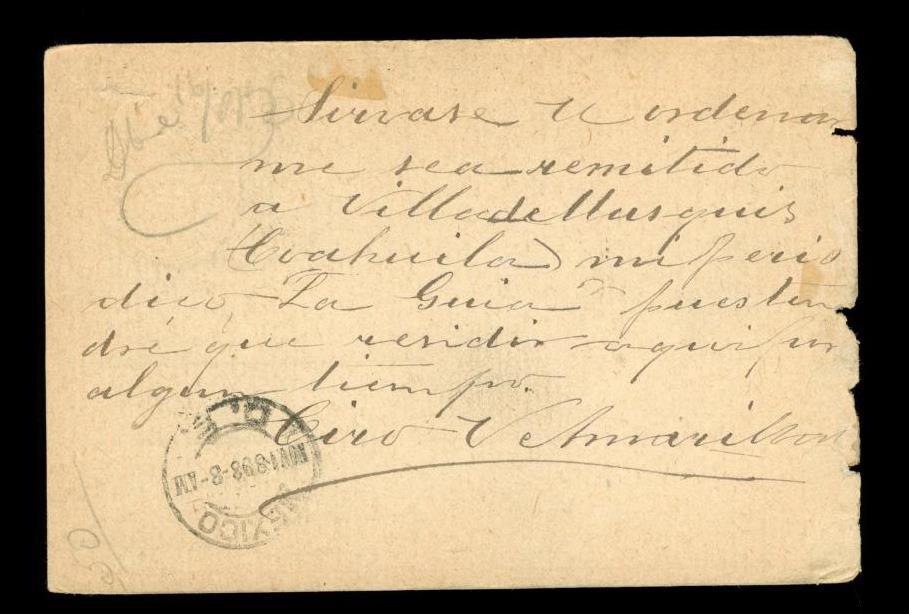 Sirvase U ordenar
me sea remitido
a Villa de Musquis
(Coahuila) mi perio
dico, "La Guia" pues ten
dré que residir aqui por
algun tiempo.
Ciro V
MEXICO
D.F.
8-AM